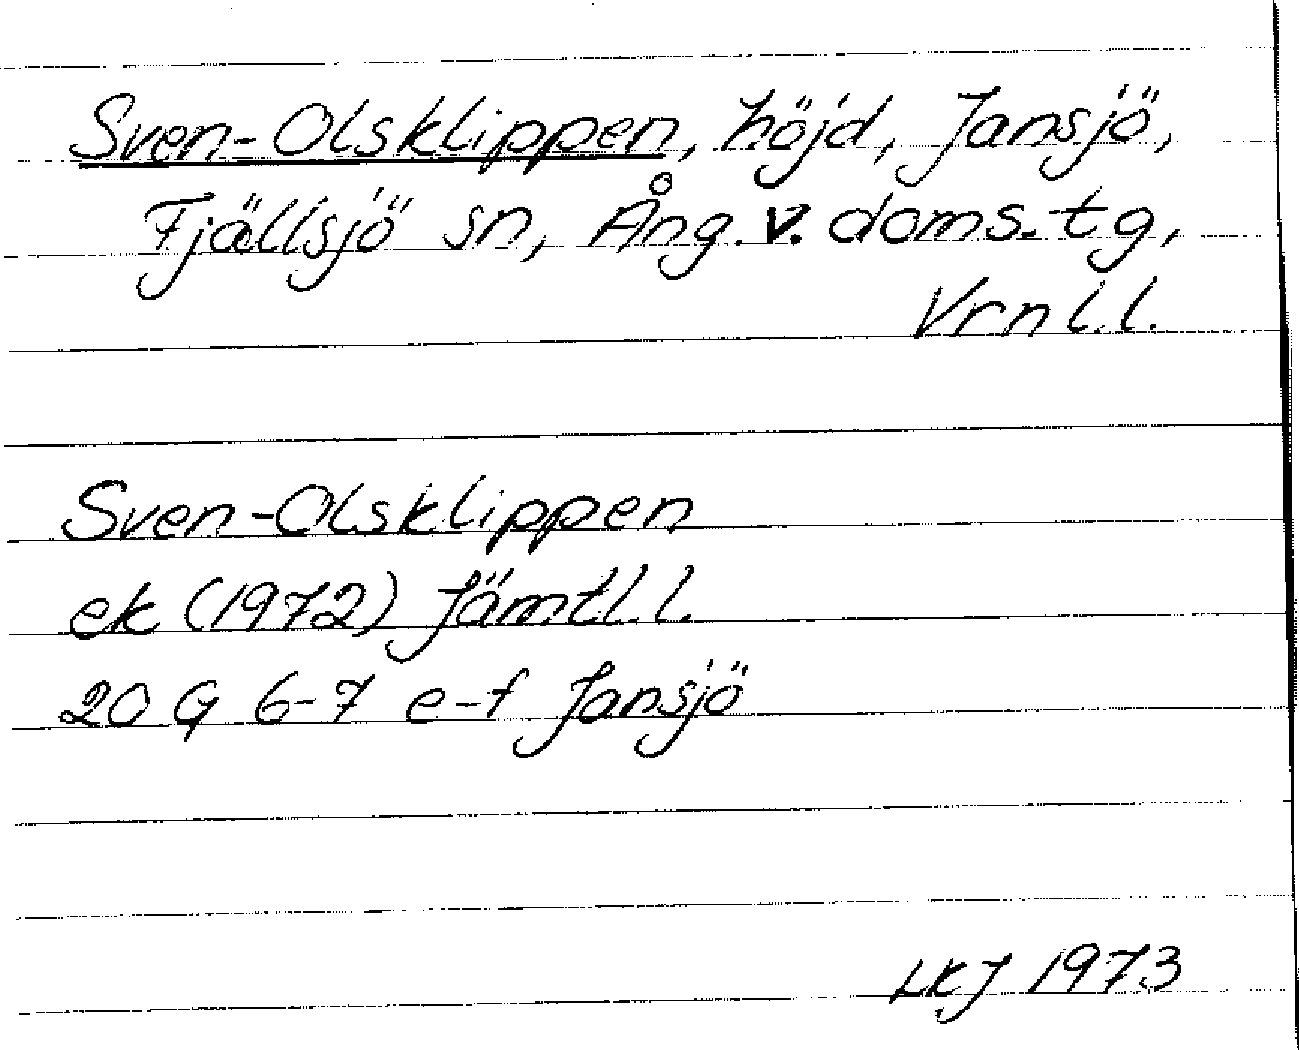 Sven-Olsklippen, höjd, Jansjö,
Fjällsjö sn, Ång. v. doms. tg,
Vrnl.l.
Sven-Olsklippen
ek (1972) Jämtl.l.
20 G 6-7 e-f Jansjö
LKJ 1973